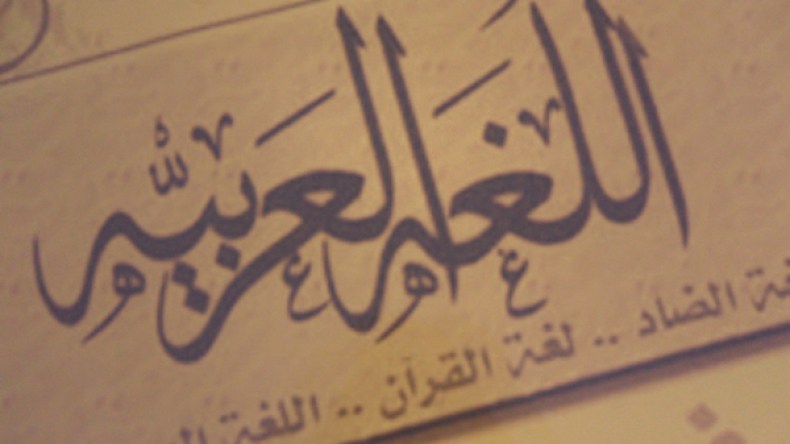 اللغة العربية
لغة الضاد .. لغة القرآن .. اللغة